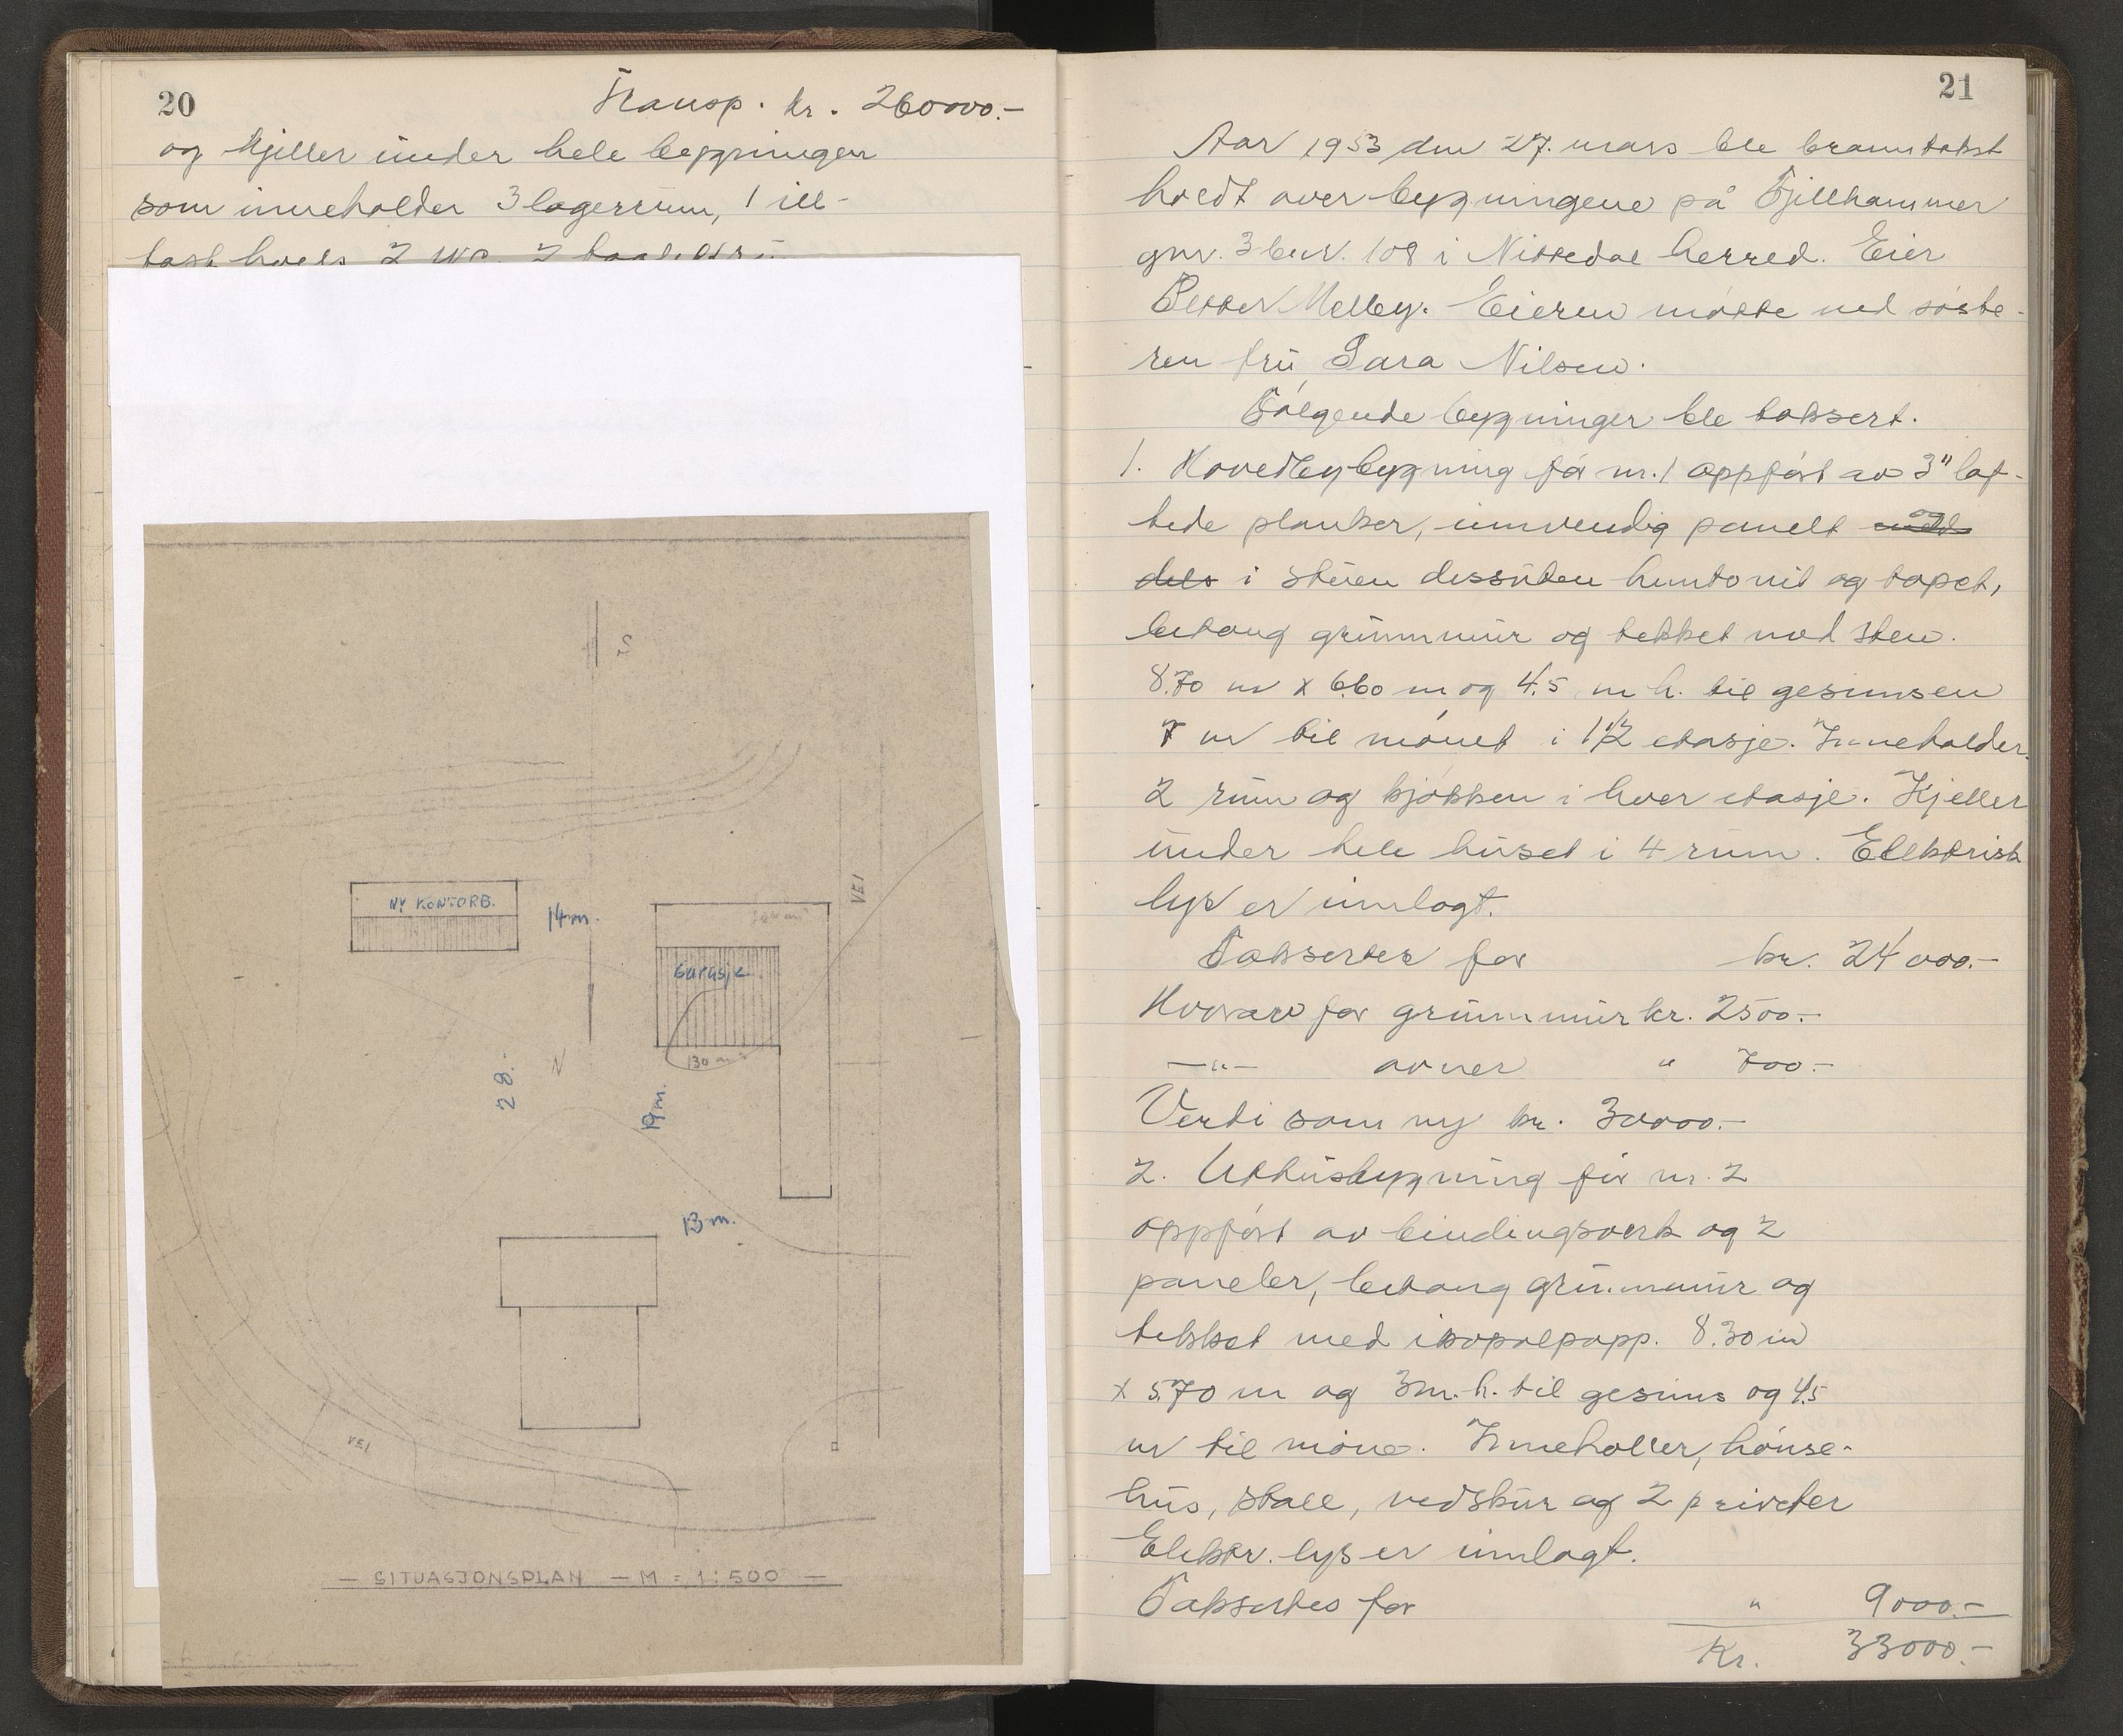 20
Transp. kr. 260000.-
og kjeller under hele bygningen
som inneholder 3 lagerrum, 1 ill-
2 WC. 2
S
NY KONTORB.
14m.
VEI
Garasje
130 m²
N
28.
19m.
13m.
VEI
— SITUASJONSPLAN — M = 1:500 —
21
Aar 1953 den 27. mars ble branntakst
holdt over bygningene på Fjellhammer
gnr. 3 bnr. 108 i Nittedal herred. Eier
Petter Melby. Eieren møtte ved søste-
ren fru Sara Nilsen.
Følgende bygninger ble taksert.
1. Hovedbybygning før nr. 1 oppført av 3" laf-
tede planker, innvendig panelt og
dels i stuen dessuten huntonit og tapet,
betong grunnmur og tekket med sten.
8.70 m x 6.60 m og 4.5 m h. til gesimsen
7 m til mønet i 1 1/2 etasje. Inneholder
2 rum og kjøkken i hver etasje. Kjeller
under hele huset i 4 rum. Elektrisk
lys er innlagt.
Takseres for kr. 24000.-
Hvorav for grunnmur kr. 2500.-
—"— ovner " 700.-
Verdi som ny kr. 30000.-
2. Uthusbygning før nr. 2
oppført av bindingsverk og 2
paneler, betong grunnmur og
tekket med isopalpapp. 8.30 m
x 5.70 m og 3 m. h. til gesims og 4.5
m til møne. Inneholler, hønse-
hus, stall, vedskur og 2 priveter
Elektr. lys er innlagt.
Taksertes for " 9000.-
Kr. 33000.-